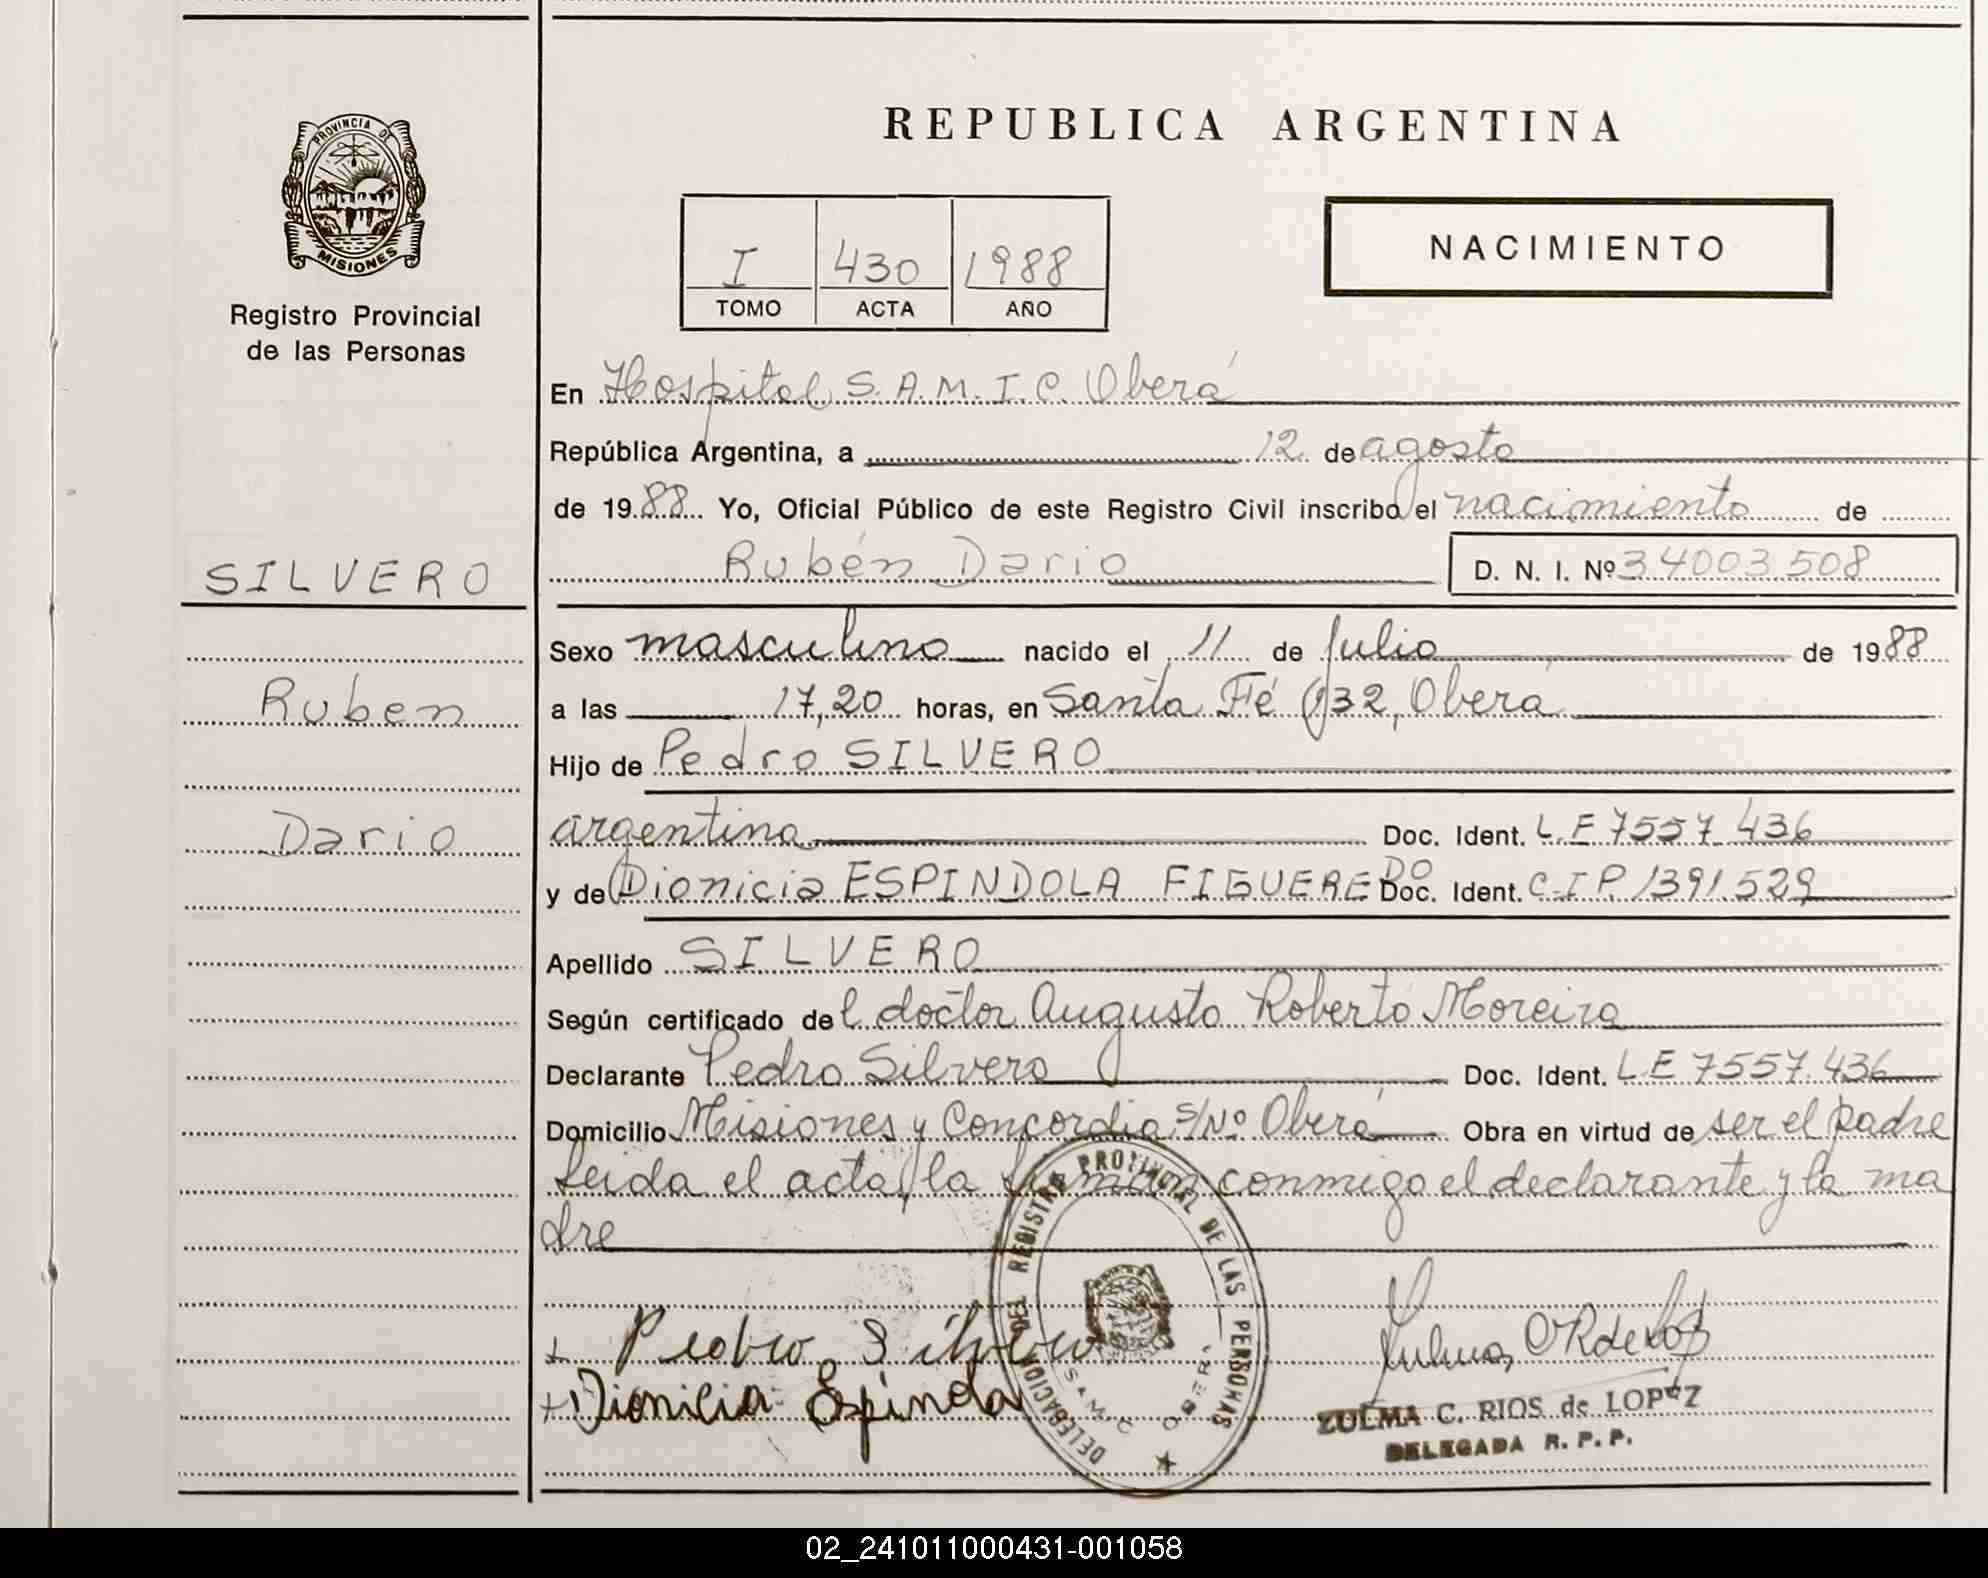 PROVINCIA DE
MISIONES
Registro Provincial
de las Personas
SILVERO
Ruben
Dario
REPUBLICA ARGENTINA
I 430 1988
TOMO ACTA AÑO
NACIMIENTO
En Hospital S.A.M.I.C. Oberá
República Argentina, a 12 de agosto
de 1988 Yo, Oficial Público de este Registro Civil inscribo el nacimiento de
Rubén Dario D. N. I. Nº 34003.508
Sexo masculino nacido el 11 de julio de 1988
a las 17,20 horas, en Santa Fé 932, Oberá
Hijo de Pedro SILVERO
argentina Doc. Ident. L.E 7557.436
y de Dionicia ESPINDOLA FIGUEREDO Doc. Ident. C.I.P. 1391.529
Apellido SILVERO
Según certificado del doctor Augusto Roberto Moreira
Declarante Pedro Silvero Doc. Ident. L.E 7557.436
Domicilio Misiones y Concordia S/Nº Oberá Obra en virtud de ser el padre
Leida el acta, la firman conmigo el declarante y la ma
dre
+ Pedro Silvero
+ Dionicia Espindola
DELEGACION DEL REGISTRO PROVINCIAL DE LAS PERSONAS
SAMIC OBERA
ZULMA C. RIOS de LOPEZ
DELEGADA R. P. P.
02_241011000431-001058